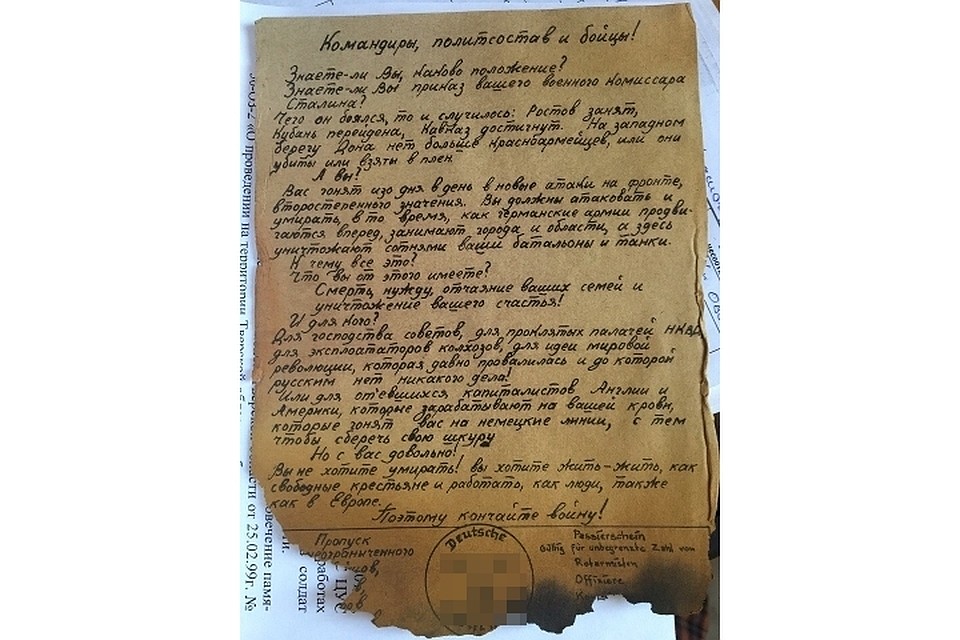 Командиры, политсостав и бойцы!
Знаете-ли Вы, каково положение?
Знаете-ли Вы приказ вашего военного комиссара
Сталина?
Чего он боялся, то и случилось: Ростов занят,
Кубань перейдена, Кавказ достигнут. На западном
берегу Дона нет больше красноармейцев, или они
убиты или взяты в плен.
А вы?
Вас гонят изо дня в день в новые атаки на фронте,
второстепенного значения. Вы должны атаковать и
умирать, в то время, как германские армии продви-
гаются вперед, занимают города и области, а здесь
уничтожают сотнями ваши батальоны и танки.
К чему все это?
Что вы от этого имеете?
Смерть, нужду, отчаяние ваших семей и
уничтожение вашего счастья!
И для кого?
Для господства советов, для проклятых палачей НКВД
для эксплоататоров колхозов, для идеи мировой
революции, которая давно провалилась и до которой
русским нет никакого дела!
Или для отъевшихся капиталистов Англии и
Америки, которые зарабатывают на вашей крови,
которые гонят вас на немецкие линии, с тем
чтобы сберечь свою шкуру
Но с вас довольно!
Вы не хотите умирать! вы хотите жить-жить, как
свободные крестьяне и работать, как люди, также
как в Европе.
Поэтому кончайте войну!
Пропуск
неограниченного
Deutsche
Passierschein
Gültig für unbegrenzte Zahl von
Rotarmisten
Offiziere
30-03-2 «О проведении на территории Тверской
области от 25.02.99г. №
овечение памя-
работах
солдат